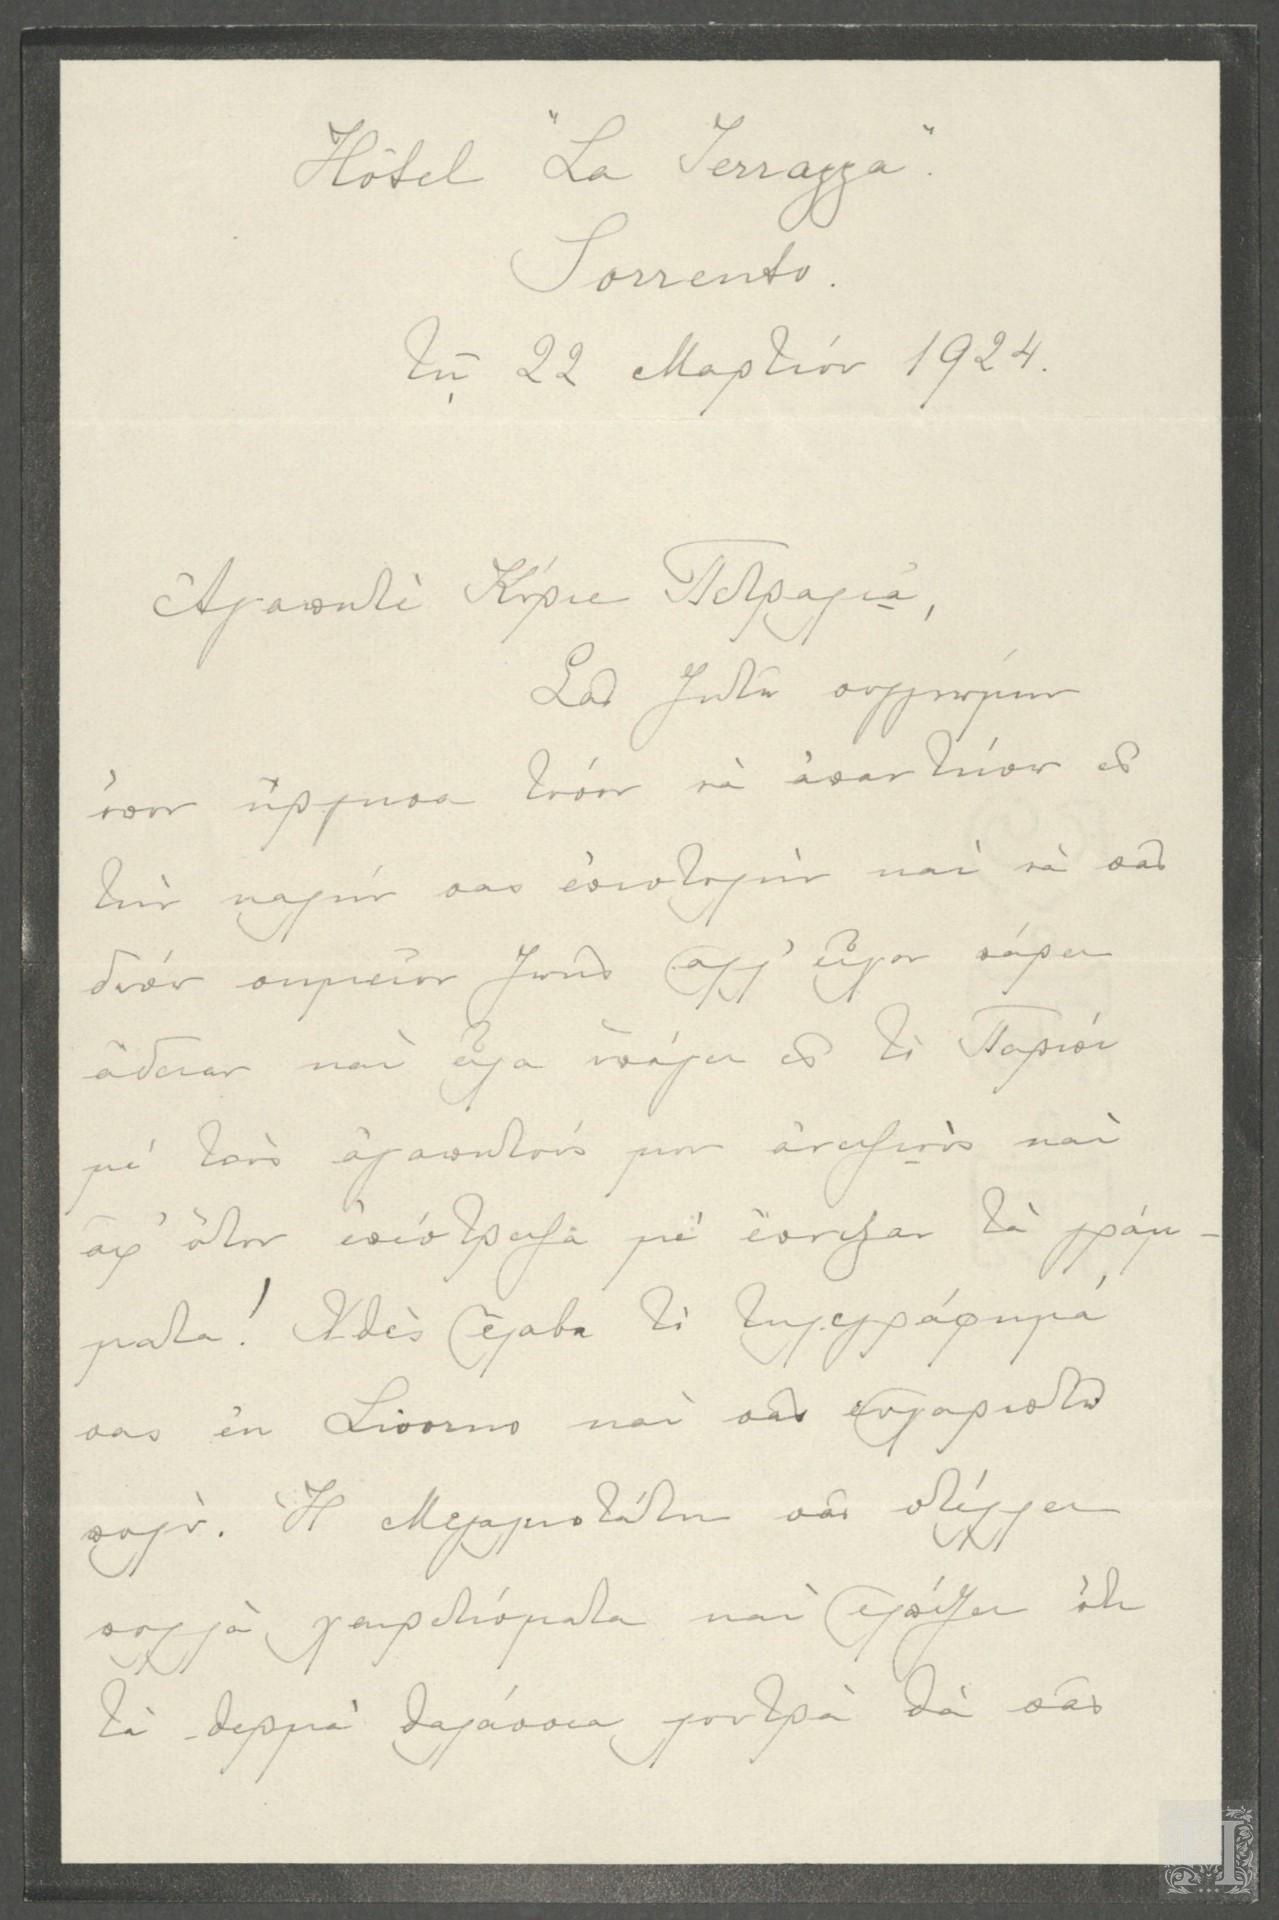 Hôtel "La Terrazza".
Sorrento.
τῇ 22 Μαρτίου 1924.
Ἀγαπητὲ Κύριε Πετραλιᾶ,
Σᾶς ζητῶ συγγνώμην
ὅπου ἤργησα τόσον νὰ ἀπαντήσω εἰς
τὴν καλήν σας ἐπιστολὴν καὶ νὰ σᾶς
δώσω σημεῖον ζωῆς ἀλλ' εἶχον πάρει
ἄδειαν καὶ εἶχα ὑπάγει εἰς τὸ Παρίσι
μὲ τοὺς ἀγαπητούς μου ἀνεψιοὺς καὶ
ἀφ' ὅτου ἐπέστρεψα μὲ ἔπνιξαν τὰ γράμ-
ματα! Χθὲς ἔλαβα τὸ τηλεγράφημά
σας ἐκ Livorno καὶ σᾶς εὐχαριστῶ
πολὺ. Ἡ Μεγαλειοτάτη σᾶς στέλλει
πολλὰ χαιρετίσματα καὶ ἐλπίζει ὅτι
τὰ θερμὰ θαλάσσια λουτρὰ θὰ σᾶς